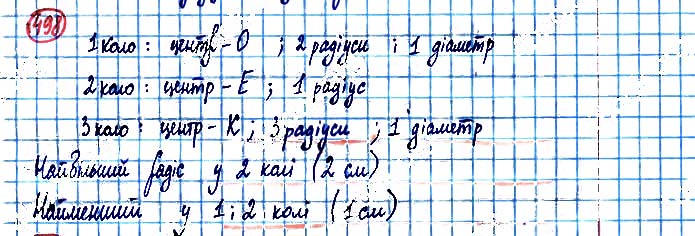 498
1 коло: центр - О ; 2 радіуси ; 1 діаметр
2 коло: центр - Е ; 1 радіус
3 коло: центр - К ; 3 радіуси ; 1 діаметр
Найбільший радіс у 2 колі (2 см)
Найменший у 1 і 2 колі (1 см)